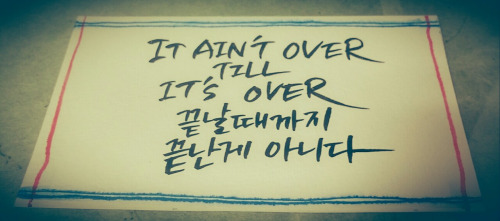 IT AIN'T OVER
TILL
IT'S OVER
끝날때까지
끝난게 아니다